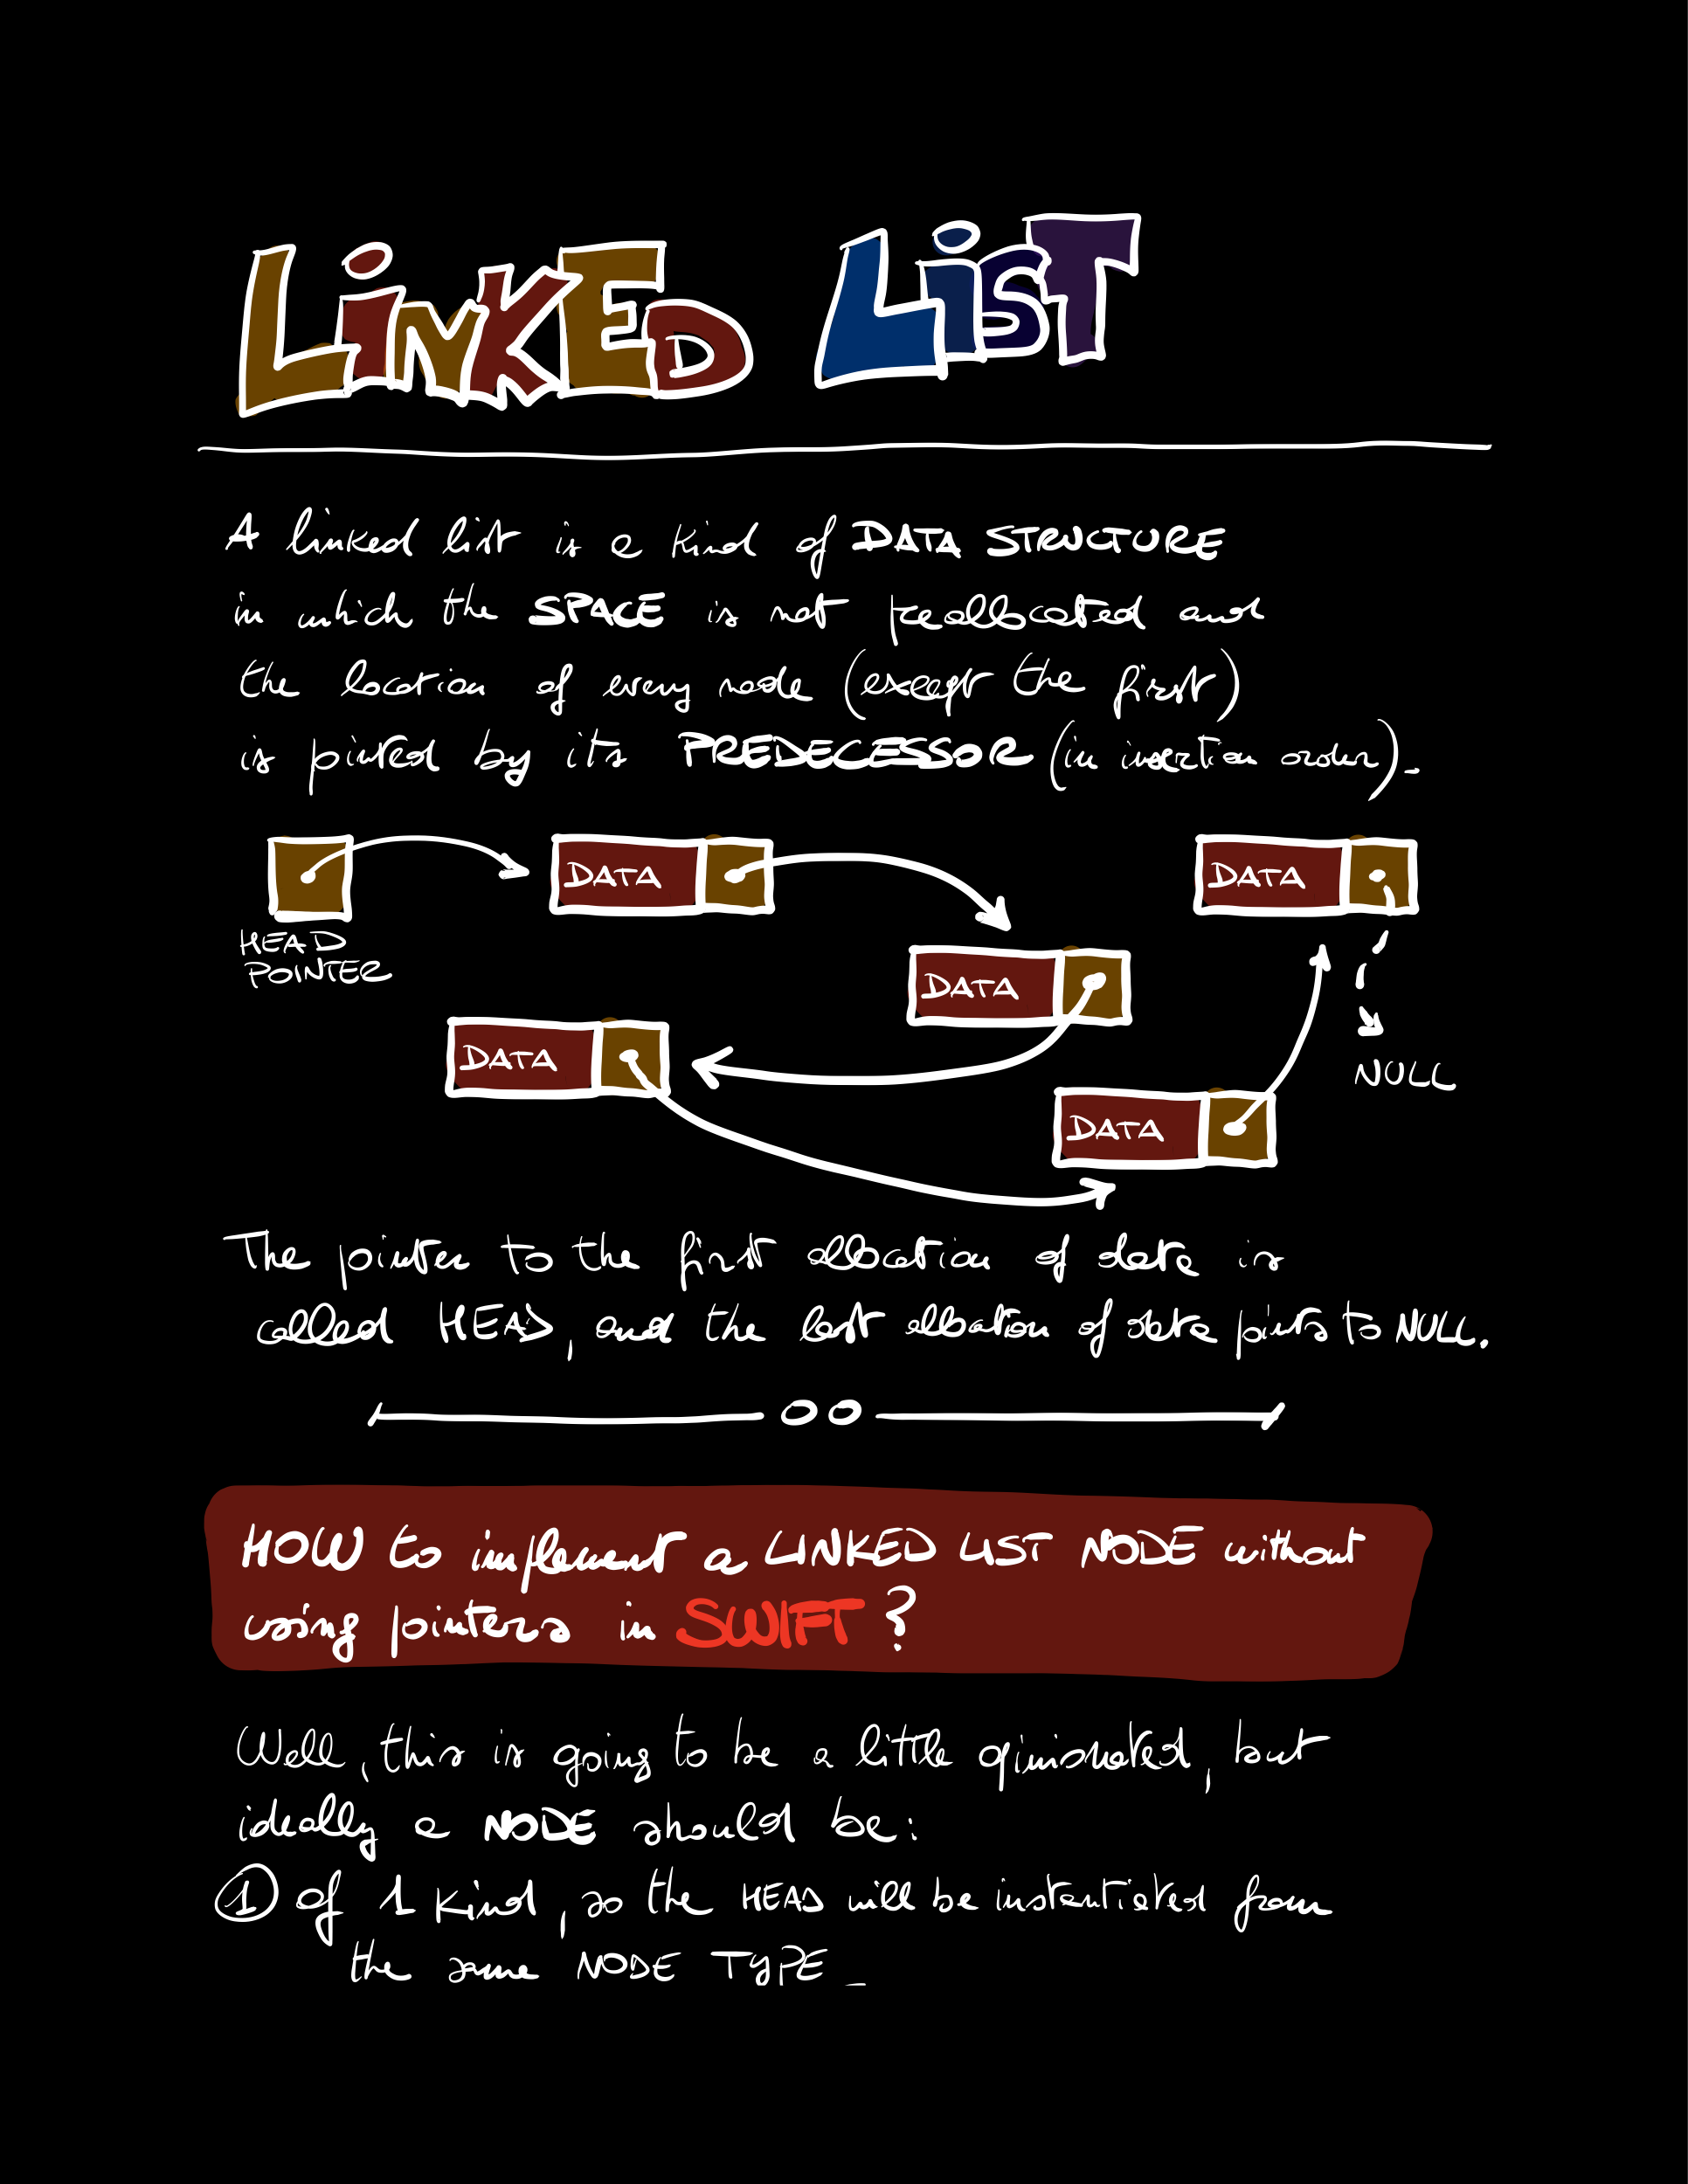 LiNKED LiST
A linked list is a kind of DATA STRUCTURE
in which the SPACE is not preallocated and
the location of every node (except the first)
is pointed by its PREDECESSOR (in insertion order)_
DATA
DATA
HEAD
POINTER
DATA
DATA
NULL
DATA
The pointer to the first allocation of data is
called HEAD, and the last allocation of data points to NULL.
HOW to implement a LINKED LIST NODE without
using pointers in SWIFT?
Well, this is going to be a little opinionated, but
ideally a NODE should be:
① of 1 kind, so the HEAD will be instantiated from
the same NODE TYPE_